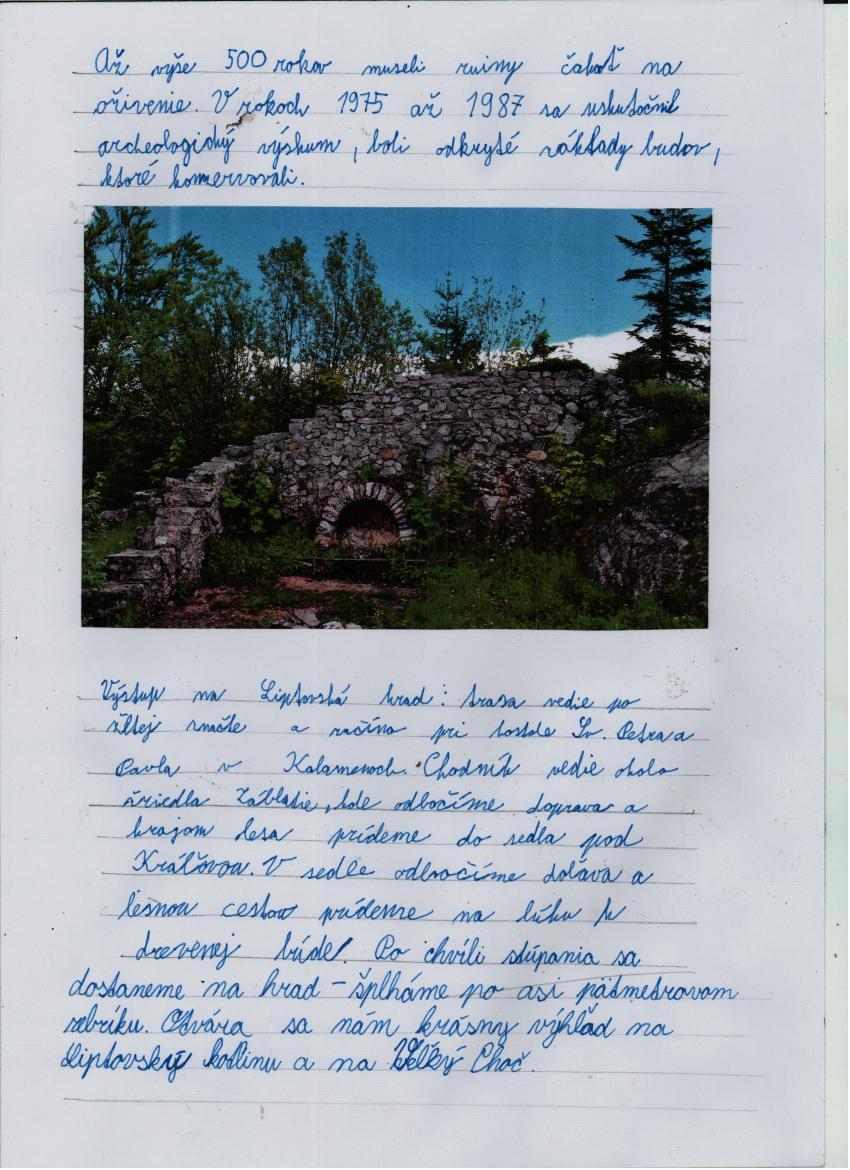 Až vyše 500 rokov museli ruiny čakať na
oživenie. V rokoch 1975 až 1987 sa uskutočnil
archeologický výskum, boli odkryté základy budov,
ktoré konzervovali.
Výstup na Liptovská hrad: trasa vedie po
žltej značke a začína pri kostole Sv. Petra a
Pavla v Kalamenoch. Chodník vedie okolo
žriedla Záblatie, kde odbočíme doprava a
krajom lesa prídeme do sedla pod
Kráľovou. V sedle odbočíme doľava a
lesnou cestou prídeme na lúku k
drevenej búde. Po chvíli stúpania sa
dostaneme na hrad - šplháme po asi päťmetrovom
rebríku. Otvára sa nám krásny výhľad na
Liptovskú kotlinu a na Veľký Choč.